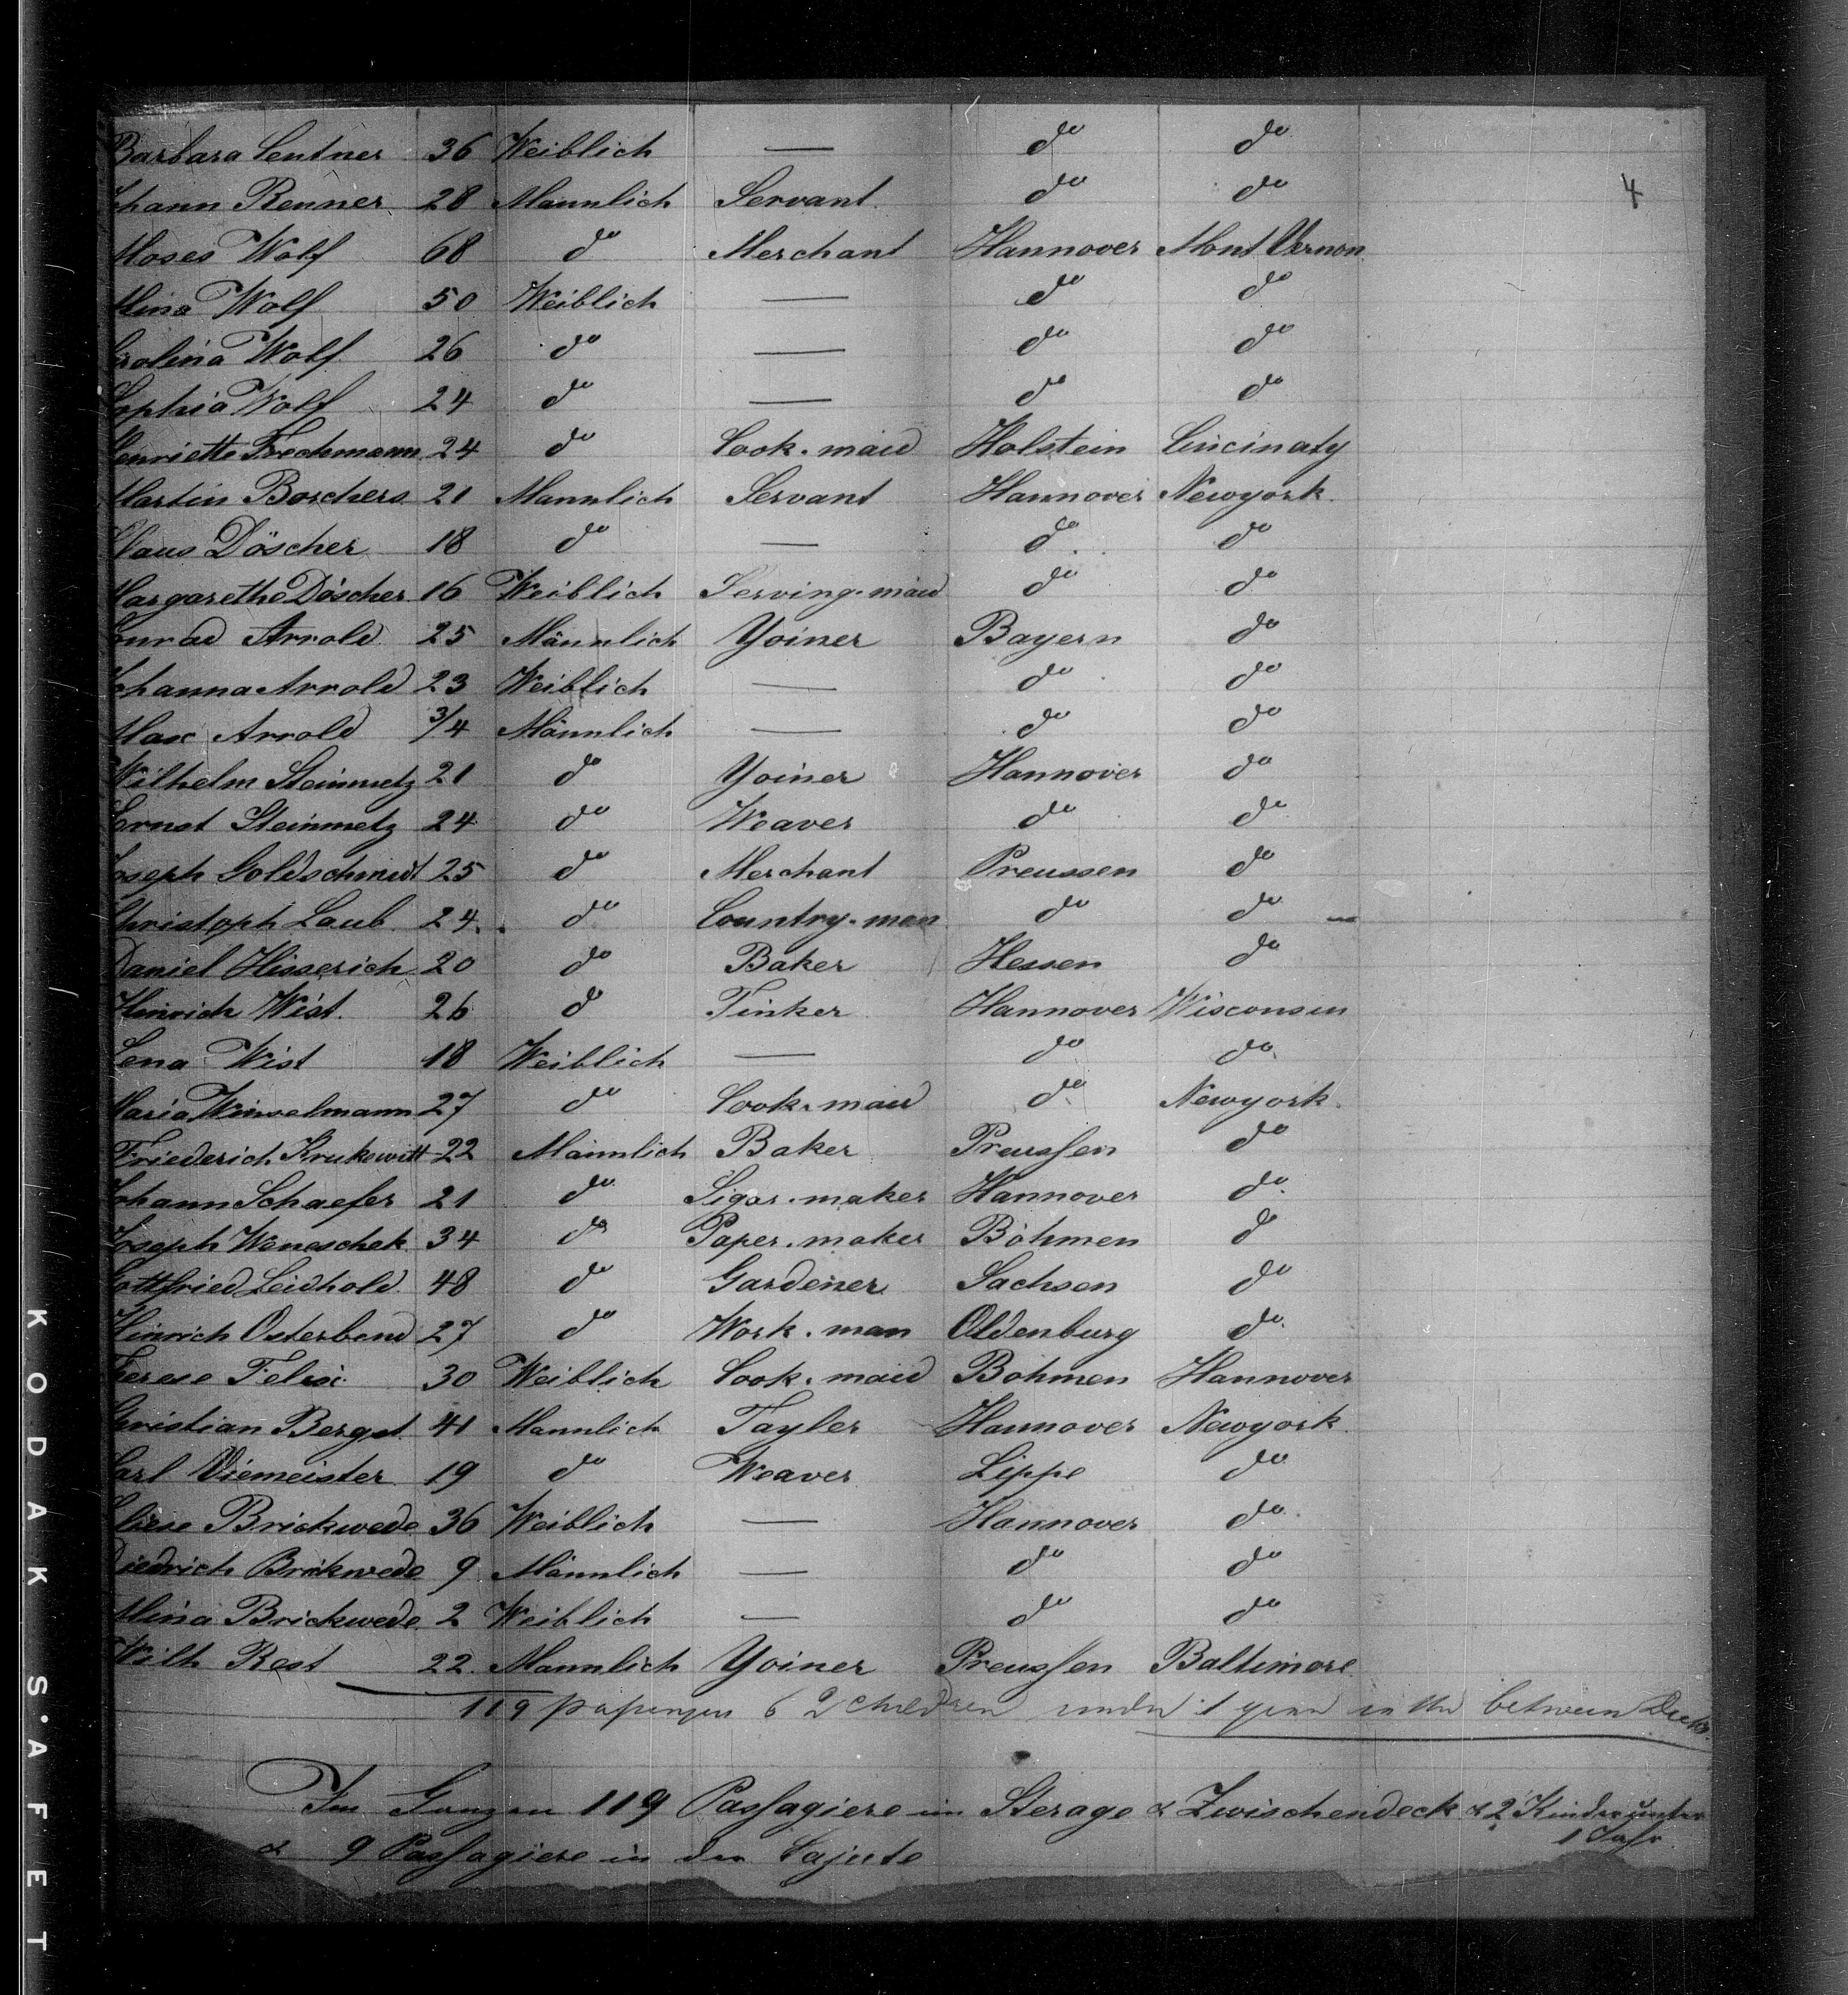 Barbara Lentner 36 Weiblich — do do
Johann Renner 28 Männlich Servant do do
4
Moses Wolf 68 do Merchant Hannover Mont Vernon
Mina Wolf 50 Weiblich — do do
Carolina Wolf 26 do — do do
Sophia Wolf 24 do — do do
Henriette 24 do Cook-maid Holstein Cincinaty
Martin Borchers 21 Mannlich Servant Hannover Newyork
Claus Döscher 18 do — do do
Margarethe Döscher 16 Weiblich Serving-maid do do
Conrad Arnold 25 Männlich Yoiner Bayern do
Johanna Arnold 23 Weiblich — do do
Max Arnold 3/4 Männlich — do do
Wilhelm Steinmetz 21 do Yoiner Hannover do
Ernst Steinmetz 24 do Weaver do do
Joseph Goldschmidt 25 do Merchant Preussen do
Christoph Laub 24 do Country-man do do
Daniel Hisserich 20 do Baker Hessen do
Hinrich Wist 26 do Tinker Hannover Wisconsin
Lena Wist 18 Weiblich — do do
Maria 27 do Cook-maid do Newyork
Friederich Krukewitt 22 Männlich Baker Preussen do
Johann Schaefer 21 do Sigar-maker Hannover do
Joseph Weneschek 34 do Paper-maker Böhmen do
Gottfried Leidhold 48 do Gardener Sachsen do
Hinrich Osterbend 27 do Work-man Oldenburg do
Therese 30 Weiblich Cook-maid Bohmen Hannover
Christian Bergst 41 Mannlich Tayler Hannover Newyork
Carl Viemeister 19 do Weaver Lippe do
Eliese Brickwede 36 Weiblich — Hannover do
Diedrich Brickwede 9 Männlich — do do
Mina Brickwede 2 Weiblich — do do
Wilh Rost 22 Mannlich Yoiner Preussen Baltimore
119 passengers & 2 children under 1 year in the between Decks
Im Ganzen 119 Passagiere im Sterage & Zwischendeck & 2 Kinder unter
1 Jahr
& 9 Passagiere in der Cajute
KODAK S'AFETY